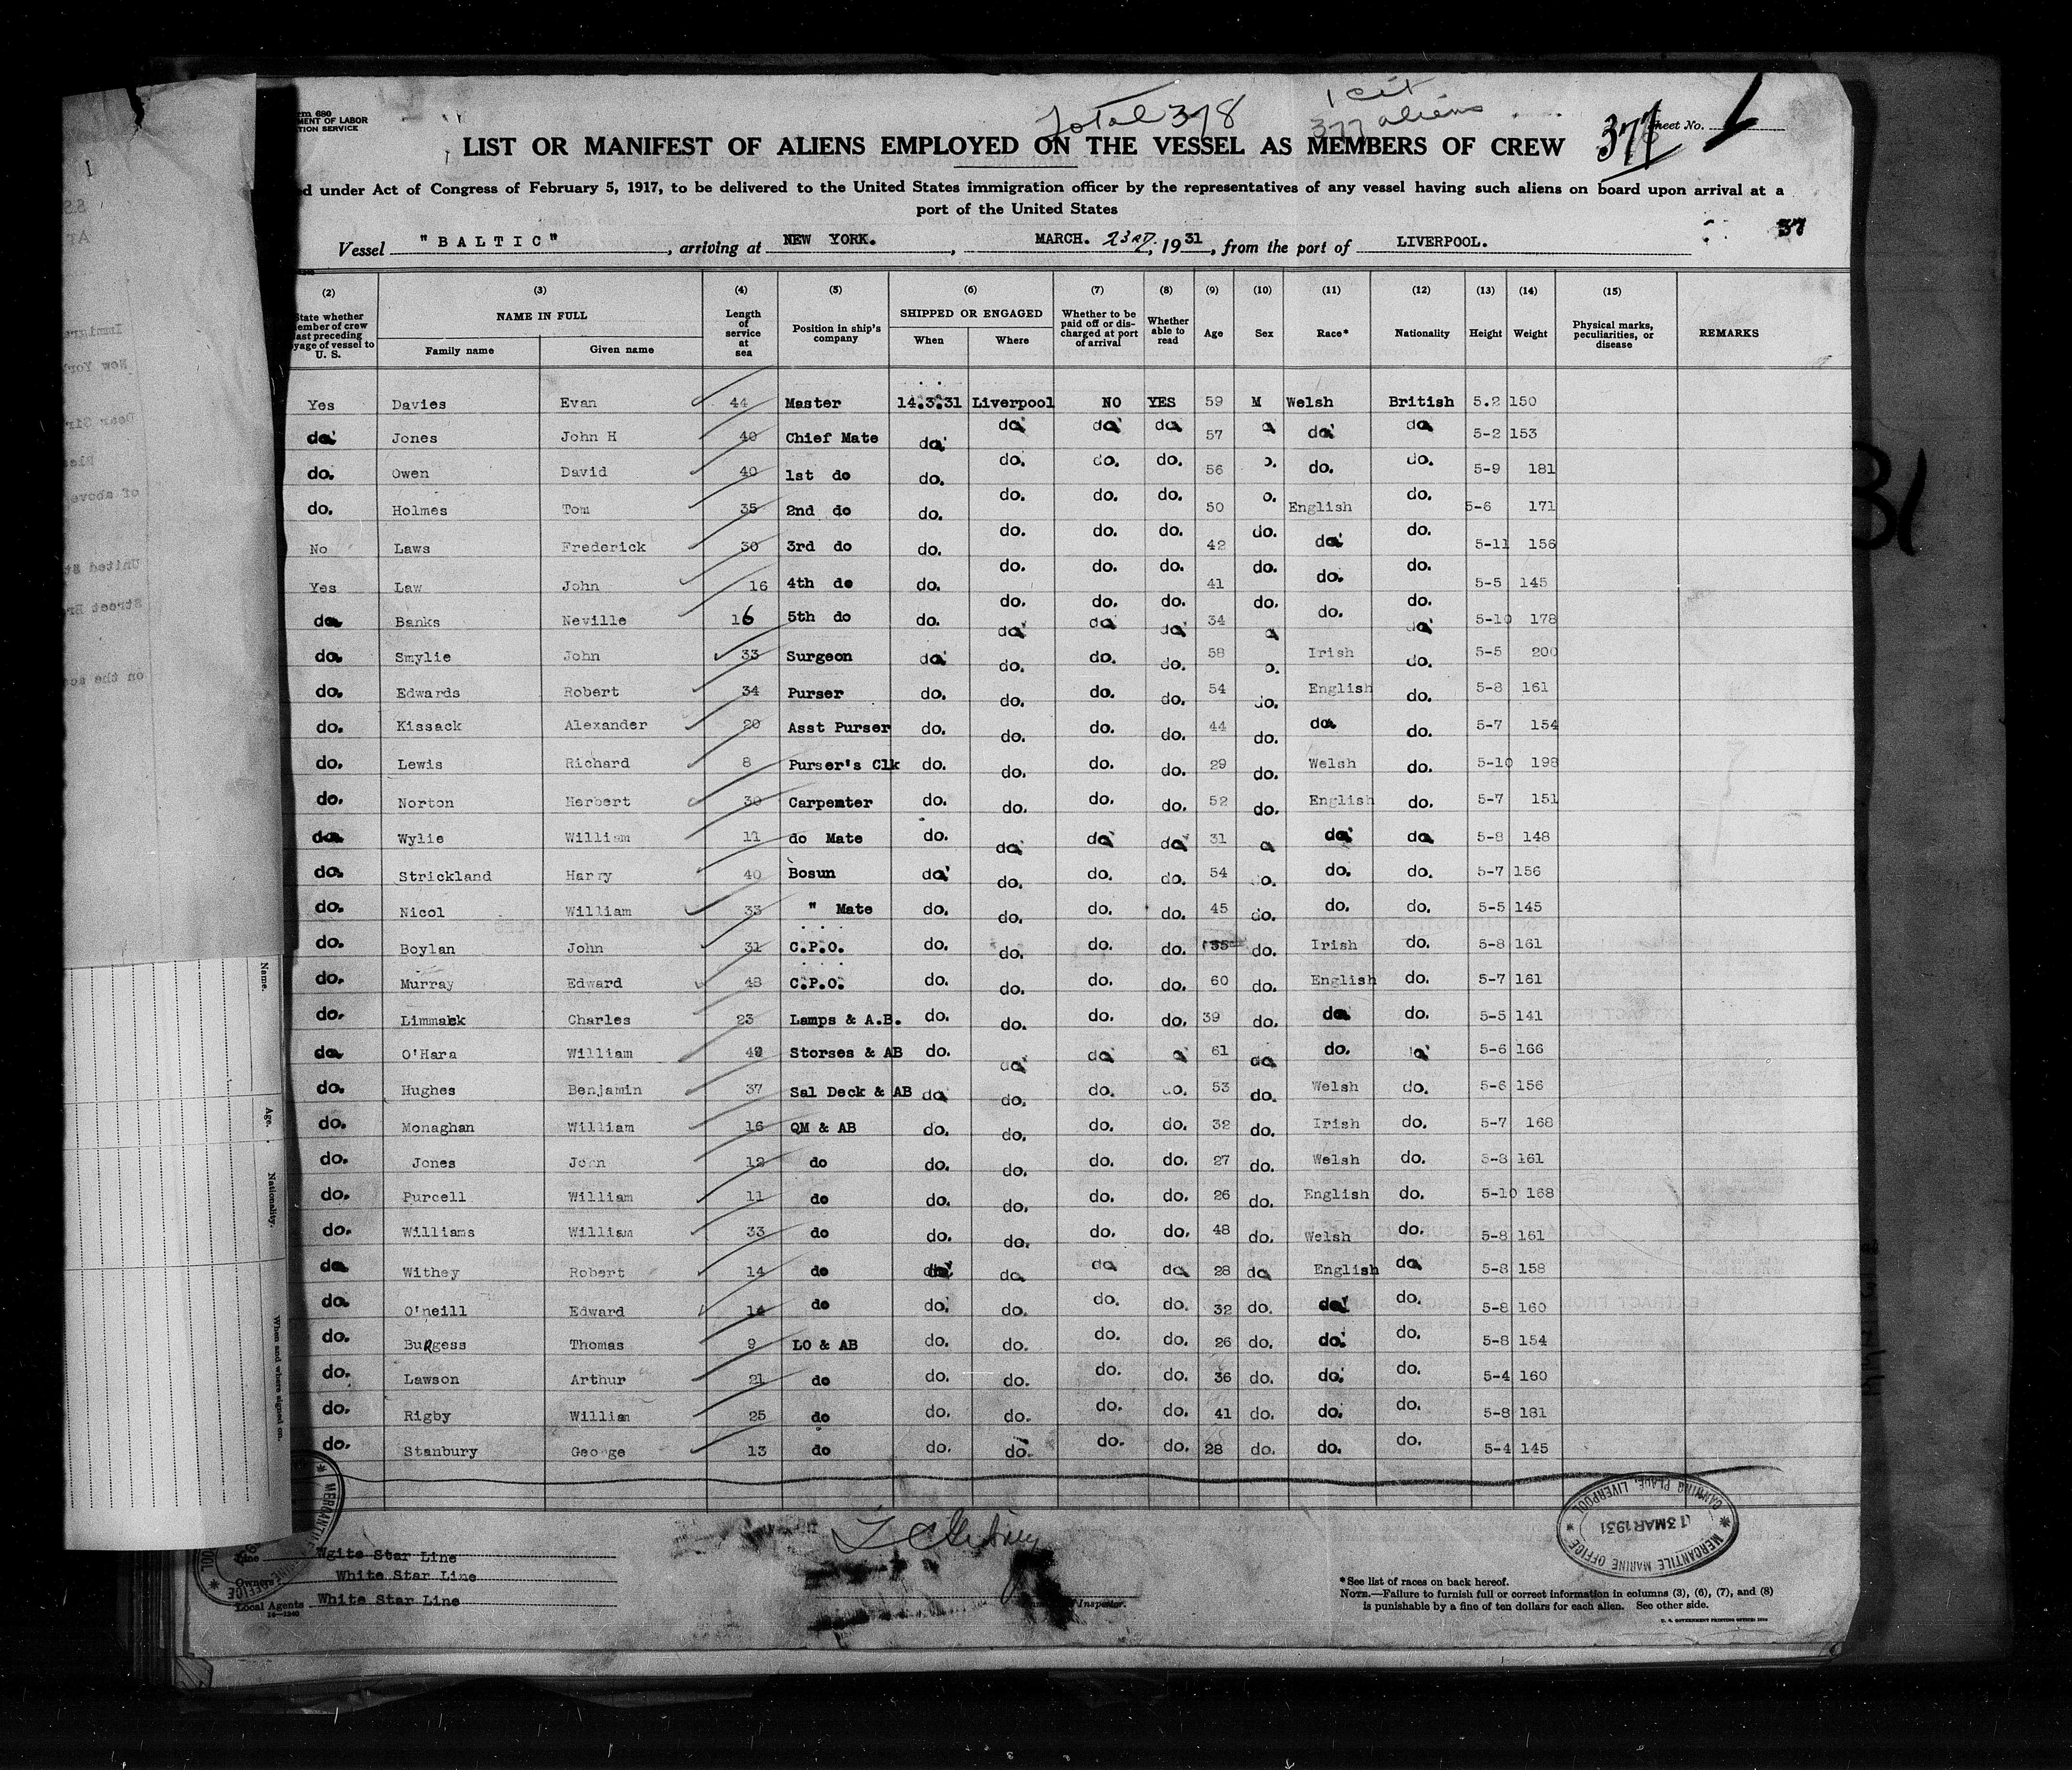 Total 378
1 cit
377 aliens
377
rm 680
MENT OF LABOR
TION SERVICE
Sheet No. 1
LIST OR MANIFEST OF ALIENS EMPLOYED ON THE VESSEL AS MEMBERS OF CREW
d under Act of Congress of February 5, 1917, to be delivered to the United States immigration officer by the representatives of any vessel having such aliens on board upon arrival at a
port of the United States
37
Vessel "BALTIC", arriving at NEW YORK., MARCH. 23rd, 1931, from the port of LIVERPOOL.
(2) (3) (4) (5) (6) (7) (8) (9) (10) (11) (12) (13) (14) (15)
State whether member of crew last preceding voyage of vessel to U. S. NAME IN FULL Family name Given name Length of service at sea Position in ship's company SHIPPED OR ENGAGED When Where Whether to be paid off or discharged at port of arrival Whether able to read Age Sex Race* Nationality Height Weight Physical marks, peculiarities, or disease REMARKS
Yes Davies Evan 44 Master 14.3.31 Liverpool NO YES 59 M Welsh British 5.2 150
do. Jones John H 40 Chief Mate do. do. do. do. 57 do. do. 5-2 153
do. Owen David 40 1st do do. do. do. do. 56 o. do. do. 5-9 181
do. Holmes Tom 35 2nd do do. do. do. do. 50 o. English do. 5-6 171
No Laws Frederick 30 3rd do do. do. do. do. 42 do. do. do. 5-11 156
Yes Law John 16 4th do do. do. do. do. 41 do. do. do. 5-5 145
do. Banks Neville 16 5th do do. do. do. do. 34 do. do. do. 5-10 178
do. Smylie John 33 Surgeon do. do. do. do. 58 Irish do. 5-5 200
do. Edwards Robert 34 Purser do. do. do. do. 54 o. English do. 5-8 161
do. Kissack Alexander 20 Asst Purser do. do. do. do. 44 do. do. do. 5-7 154
do. Lewis Richard 8 Purser's Clk do. do. do. do. 29 do. Welsh do. 5-10 198
do. Norton Herbert 30 Carpenter do. do. do. do. 52 do. English do. 5-7 151
do. Wylie William 11 do Mate do. do. do. do. 31 do. do. 5-8 148
do. Strickland Harry 40 Bosun do. do. do. do. 54 do. do. do. 5-7 156
do. Nicol William 33 " Mate do. do. do. do. 45 do. do. do. 5-5 145
do. Boylan John 31 C.P.O. do. do. do. do. do. Irish do. 5-8 161
do. Murray Edward 48 C.P.O. do. do. do. do. 60 do. English do. 5-7 161
do. Charles 23 Lamps & A.B. do. do. do. do. 39 do. do. do. 5-5 141
do. O'Hara William Storses & AB do. do. do. 61 do. do. 5-6 166
do. Hughes Benjamin 37 Sal Deck & AB do. do. do. do. 53 do. Welsh do. 5-6 156
do. Monaghan William 16 QM & AB do. do. do. do. 32 do. Irish do. 5-7 168
do. Jones John 12 do do. do. do. do. 27 do. Welsh do. 5-8 161
do. Purcell William 11 do do. do. do. do. 26 do. English do. 5-10 168
do. Williams William 33 do do. do. do. do. 48 do. Welsh do. 5-8 161
do. Withey Robert 14 do do. do. do. do. 28 do. English do. 5-8 158
do. O'neill Edward 14 do do. do. do. do. 32 do. do. do. 5-8 160
do. BuRgess Thomas 9 LO & AB do. do. do. do. 26 do. do. do. 5-8 154
do. Lawson Arthur 21 do do. do. do. do. 36 do. do. do. 5-4 160
do. Rigby William 25 do do. do. do. do. 41 do. do. do. 5-8 181
do. Stanbury George 13 do do. do. do. do. 28 do. do. do. 5-4 145
Line Wgite Star Line
Owners White Star Line
Local Agents White Star Line
Inspector.
MERCANTILE MARINE OFFICE
13 MAR 1931
CANNING PLACE, LIVERPOOL
*See list of races on back hereof.
NOTE.—Failure to furnish full or correct information in columns (3), (6), (7), and (8)
is punishable by a fine of ten dollars for each alien. See other side.
Name.
Age.
Nationality.
When and where signed on.